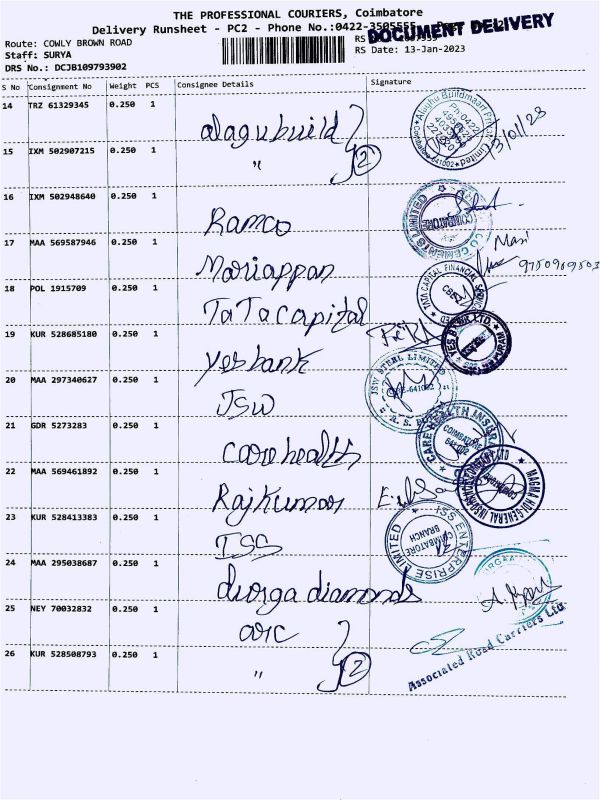 THE PROFESSIONAL COURIERS, Coimbatore
Delivery Runsheet - PC2 - Phone No.:0422-3505555
DOCUMENT DELIVERY
Route: COWLY BROWN ROAD
Staff: SURYA
RS Date: 13-Jan-2023
DRS No.: DCJB109793902
S No Consignment No Weight PCS Consignee Details Signature
14 TRZ 61329345 0.250 1
alagubuild
13/01/23
15 IXM 502907215 0.250 1
" 2
16 IXM 502948640 0.250 1
Ramco
COIMBATORE
17 MAA 569587946 0.250 1
Mariappan
Mari
9750969503
18 POL 1915709 0.250 1
TaTa capital
TATA CAPITAL FINANCIAL
CBE
19 KUR 528685180 0.250 1
yesbank
YES BANK LTD
20 MAA 297340627 0.250 1
JSW
JSW STEEL LIMITED
21 GDR 5273283 0.250 1
care health
CARE HEALTH INSUR
COIMBATORE
641002
22 MAA 569461892 0.250 1
Rajkumar
MAGMA HDI GENERAL INSURANCE COMPANY LTD
Coimbatore
23 KUR 528413383 0.250 1
ISS
ISS ENTERPRISE LIMITED
COIMBATORE
BRANCH
24 MAA 295038687 0.250 1
durga diamonds
25 NEY 70032832 0.250 1
arc
Associated Road Carriers Ltd.
26 KUR 528508793 0.250 1
" 2